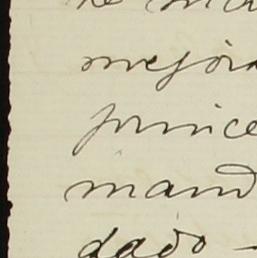 mejora
prince
mand
dado -